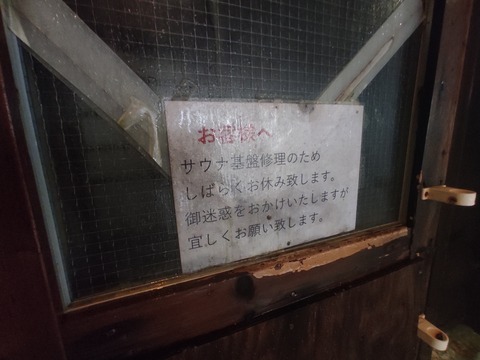 お客様へ
サウナ基盤修理のため
しばらくお休み致します。
御迷惑をおかけいたしますが
宜しくお願い致します。